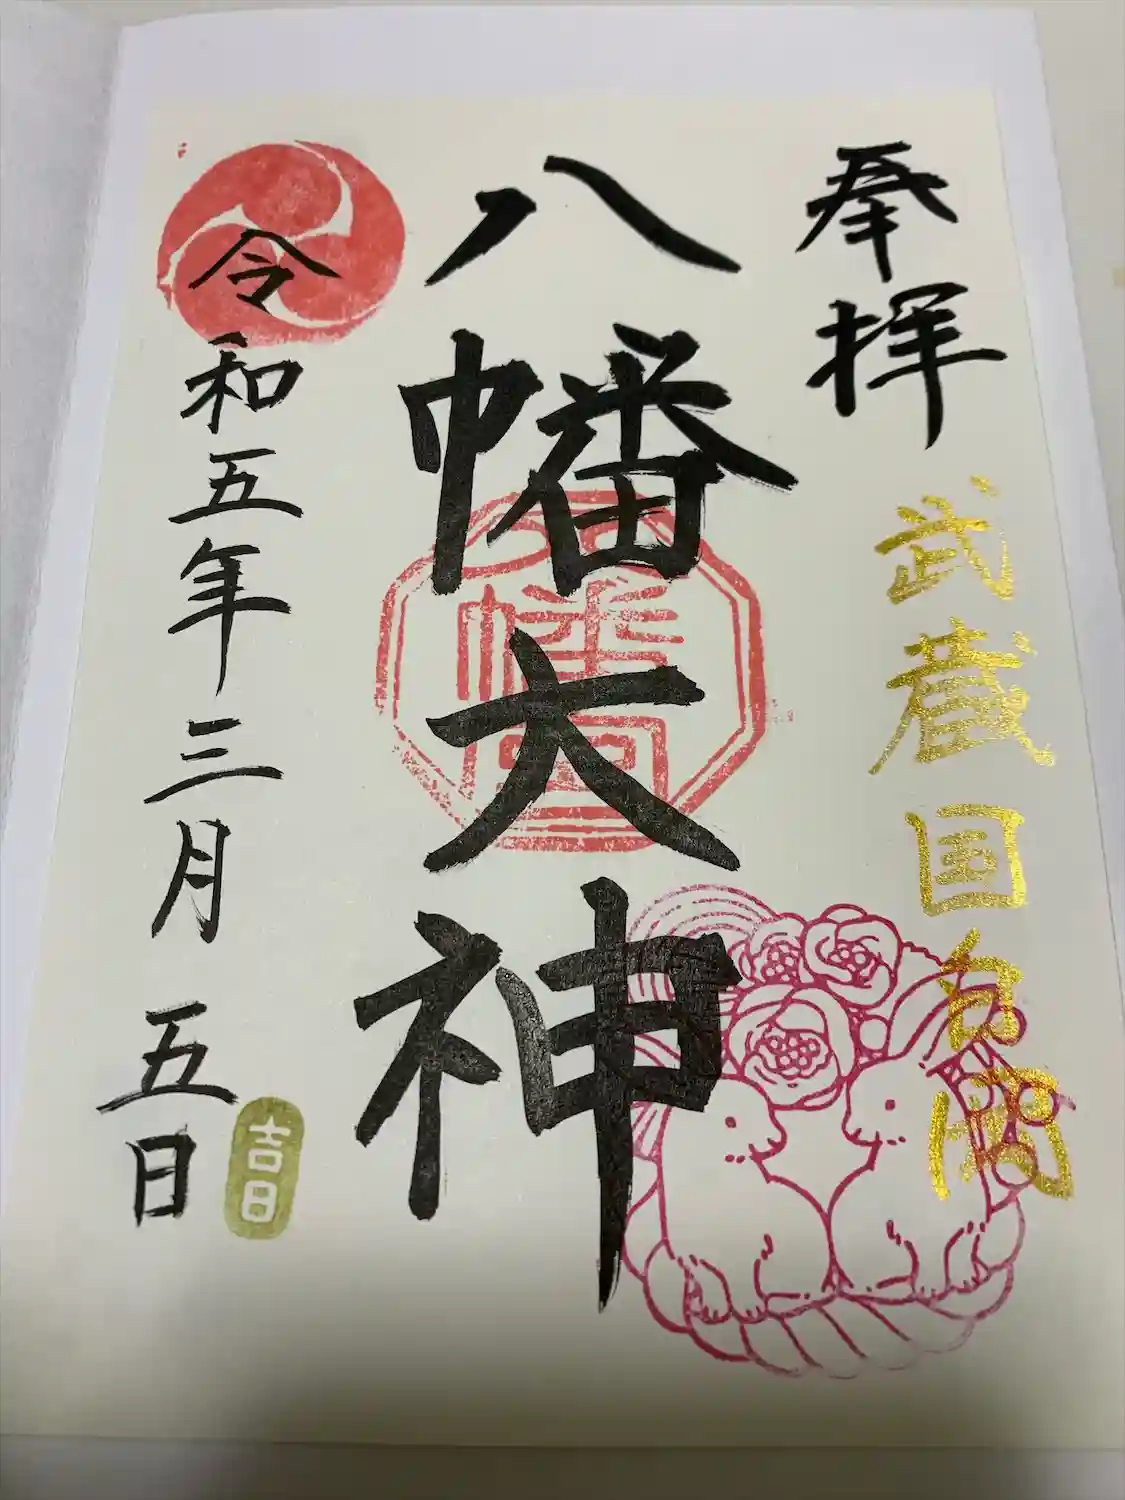 奉拝
武蔵国白岡
八幡大神
八幡宮
令和五年三月五日
吉日